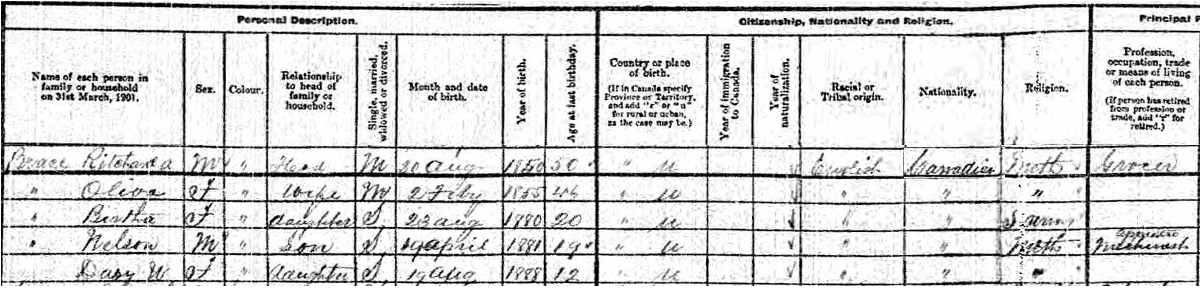 Personal Description. Citizenship, Nationality and Religion. Principal
Name of each person in family or household on 31st March, 1901. Sex. Colour. Relationship to head of family or household. Single, married, widowed or divorced. Month and date of birth. Year of birth. Age at last birthday. Country or place of birth. (If in Canada specify Province or Territory, and add "r" or "u" for rural or urban, as the case may be.) Year of immigration to Canada. Year of naturalization. Racial or Tribal origin. Nationality. Religion. Profession, occupation, trade or means of living of each person. (If person has retired from profession or trade, add "r" for retired.)
M " Head M 20 Aug 1850 50 " u English Canadian Meth Grocer
" Oliva F " Wife M 2 Feby 1855 46 " u " " "
" Bertha F " daughter S 23 Aug 1880 20 " u " " S army
" Nelson M " Son S 19 April 1881 19 " u " " Meth
F " daughter S 19 Aug 1888 12 " u " " "